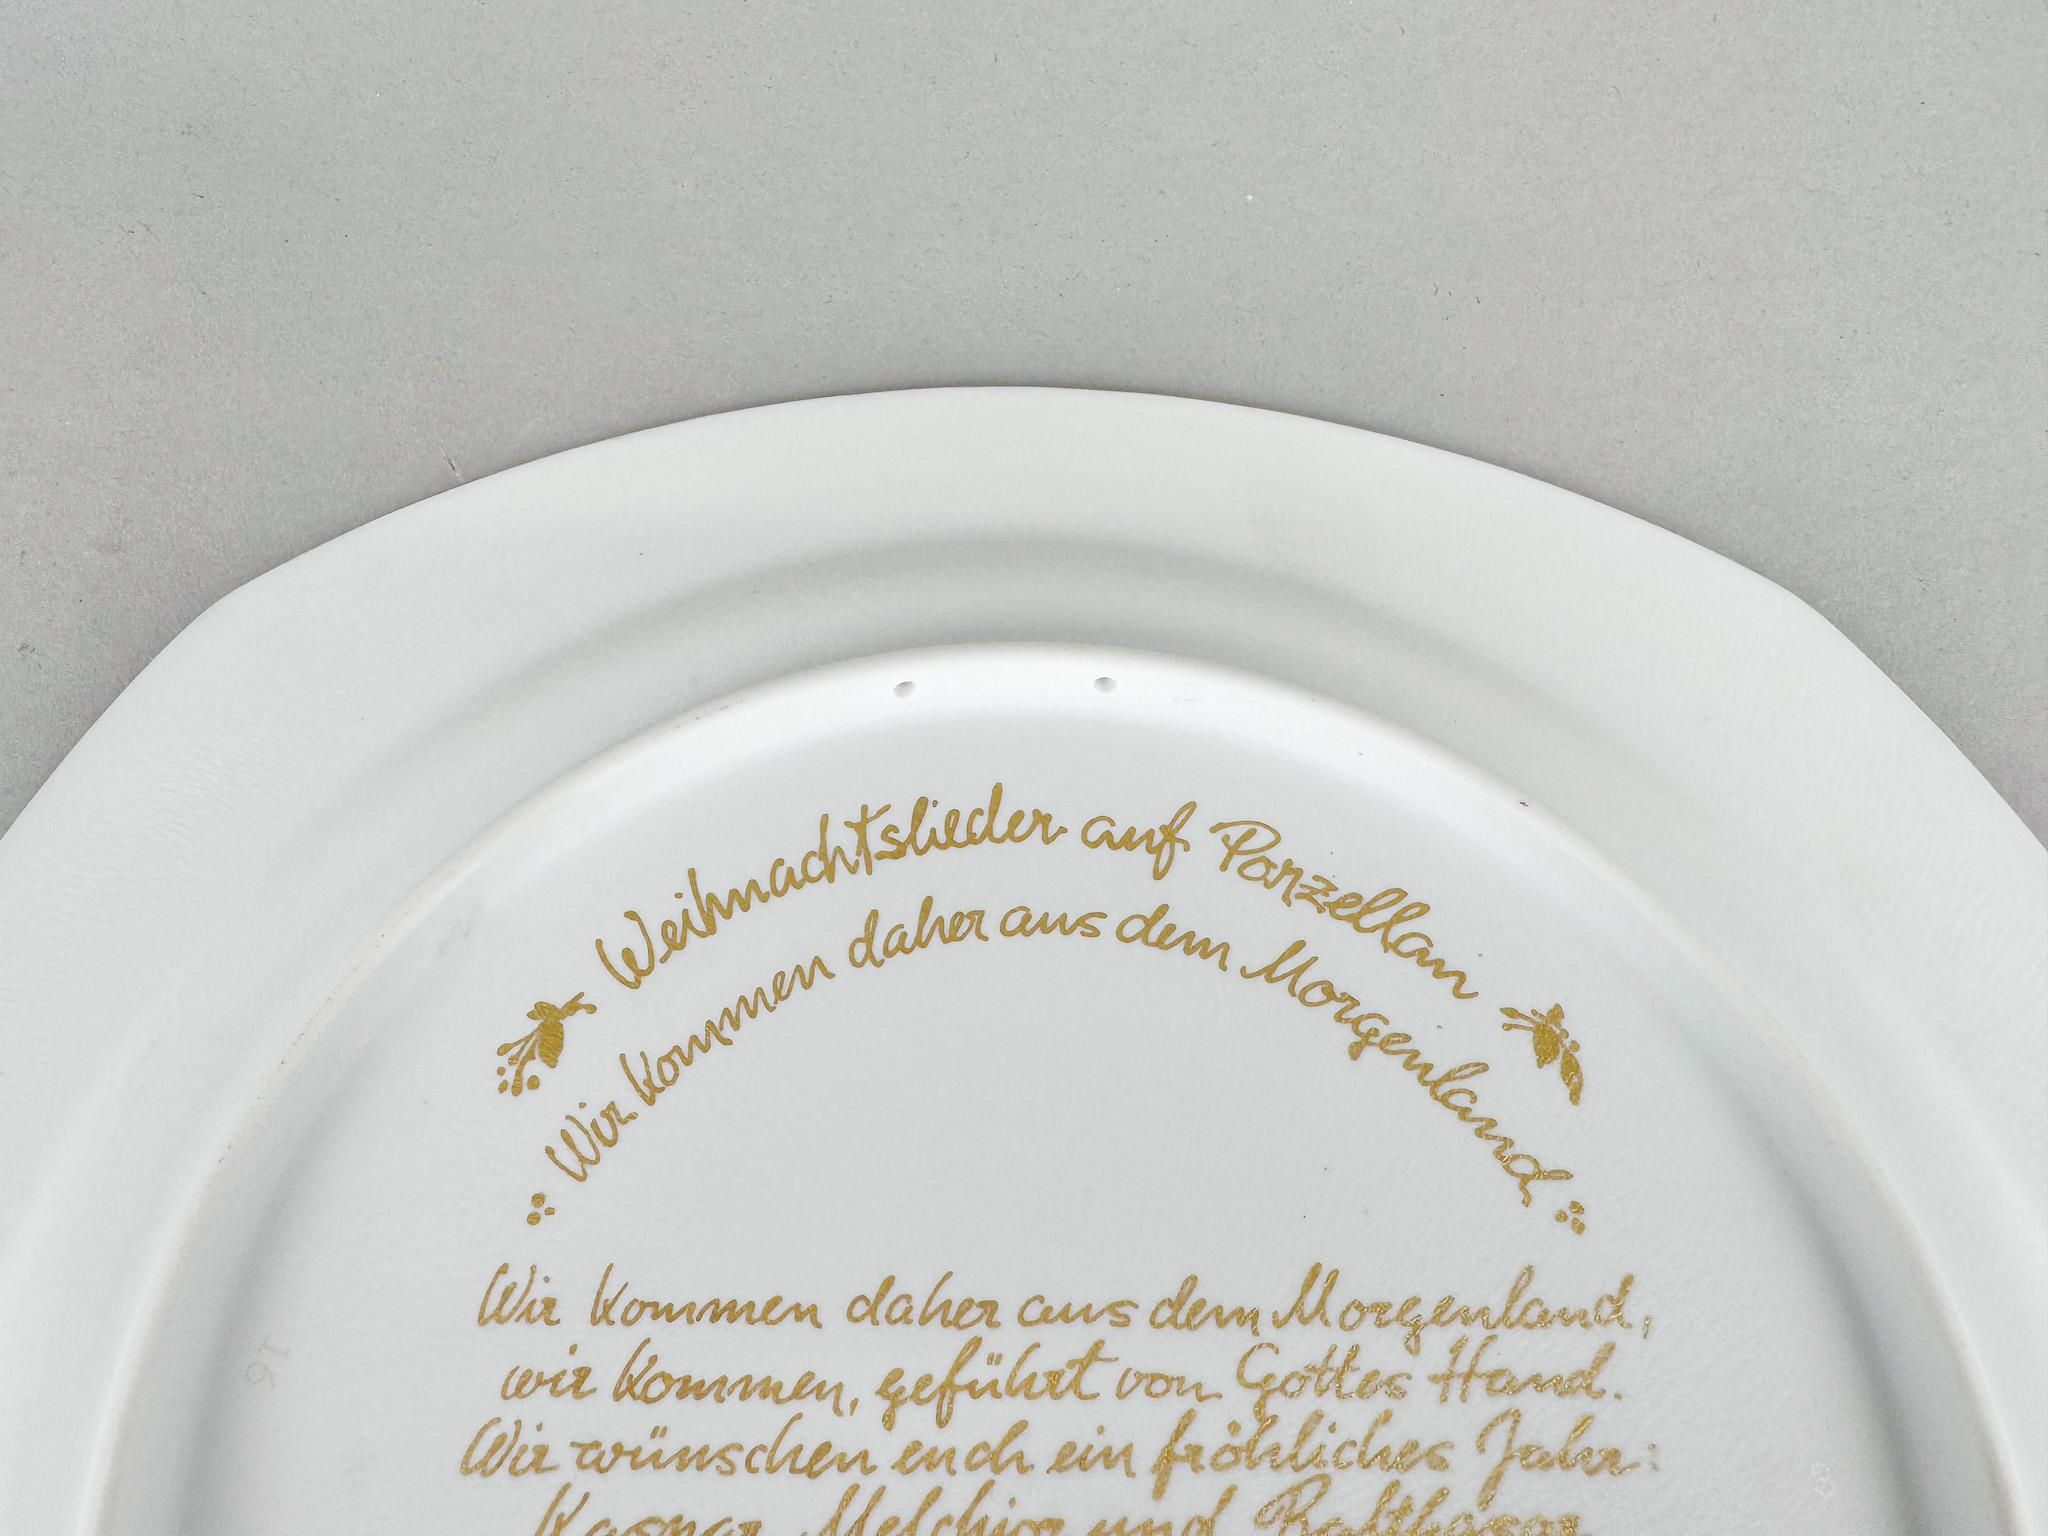 Weihnachtslieder auf Porzellan
Wir kommen daher aus dem Morgenland
Wir kommen daher aus dem Morgenland,
wir kommen, geführt von Gottes Hand.
Wir wünschen euch ein fröhliches Jahr:
Kaspar, Melchior und Balthasar
16